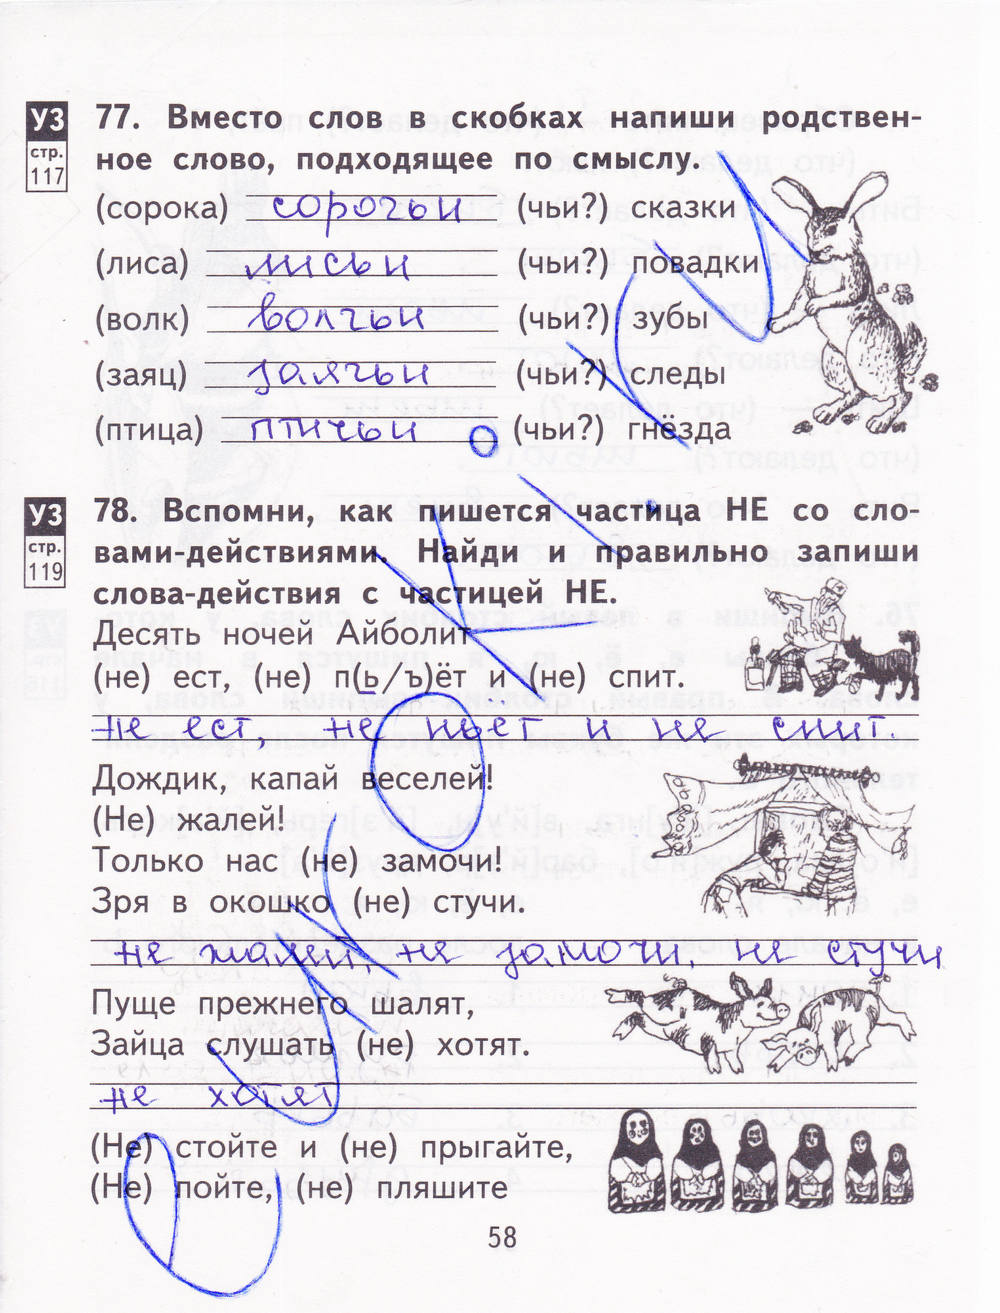 УЗ
стр.
117
77. Вместо слов в скобках напиши родствен-
ное слово, подходящее по смыслу.
(сорока) сорочьи (чьи?) сказки
(лиса) лисьи (чьи?) повадки
(волк) волчьи (чьи?) зубы
(заяц) заячьи (чьи?) следы
(птица) птичьи (чьи?) гнёзда
УЗ
стр.
119
78. Вспомни, как пишется частица НЕ со сло-
вами-действиями. Найди и правильно запиши
слова-действия с частицей НЕ.
Десять ночей Айболит
(не) ест, (не) п(ь/ъ)ёт и (не) спит.
не ест, не пьёт и не спит.
Дождик, капай веселей!
(Не) жалей!
Только нас (не) замочи!
Зря в окошко (не) стучи.
не жалей, не замочи, не стучи
Пуще прежнего шалят,
Зайца слушать (не) хотят.
не хотят
(Не) стойте и (не) прыгайте,
(Не) пойте, (не) пляшите
58